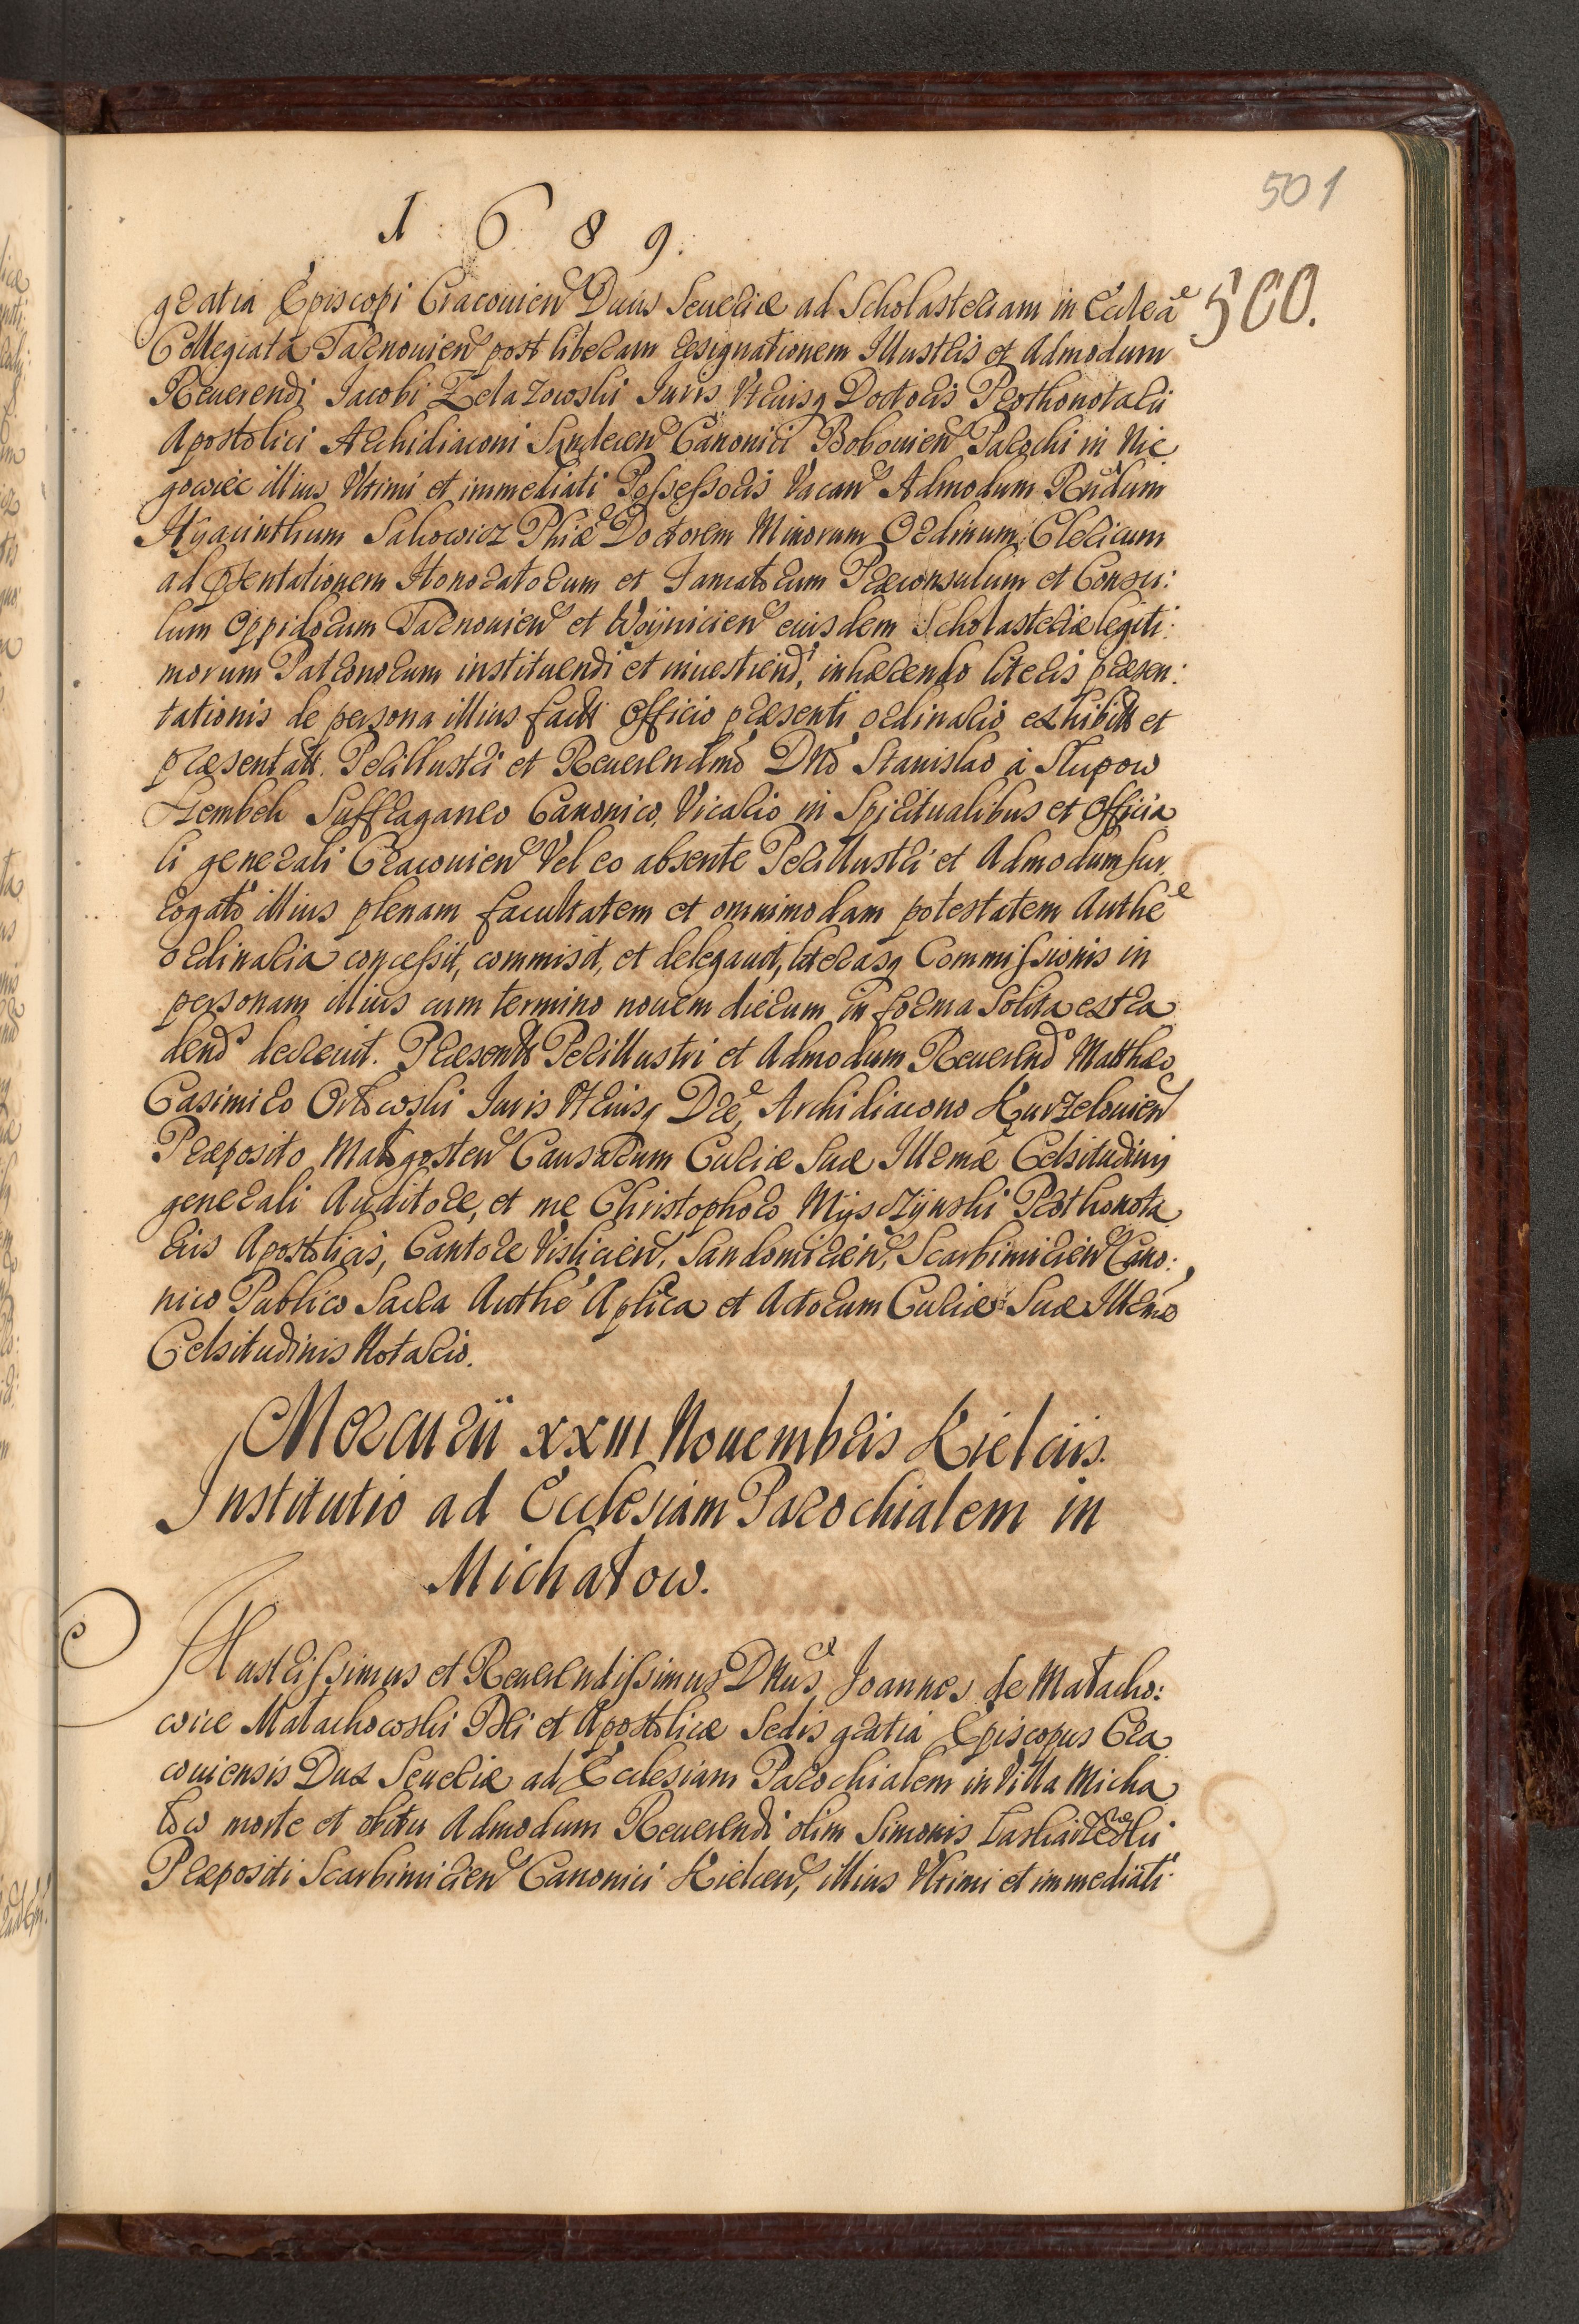 501
1689.
500.
gratia Episcopi Cracouien Ducis Seueriæ ad Scholasteriam in Eccleâ
Collegiata Tarnouien post liberam resignationem Illustris et Admodum
Reuerendi Jacobi Zelazowski Juris Vtriusq Doctoris Prothonotarii
Apostolici Archidiaconi Sandecen Canonici Bobouien Parochi in Nie
gowiec illius Vltimi et immediati Possessoris Vacan Admodum Rndum
Hyacinthum Sakowicz Phiæ Doctorem Minorum Ordinum Clericum
ad pntationem Honoratorum et Famatorum Præconsulum et Consu:
lum Oppidorum Tarnouien et Woynicien eiusdem Scholasteriæ legiti:
morum Patronorum instituendi et inuestiend, inhærendo literis præsen:
tationis de persona illius fact Officio præsenti ordinario exhibit et
præsentat. Perillustri et Reuerendmo Dno Stanislao à Slupow
Szembek Suffraganeo Canonico, Vicario in Spiritualibus et Officia
li generali Cracouien Vel eo absente Perillustri et Admodum sur
rogato illius plenam facultatem et omnimodam potestatem Authe
ordinaria concessit, commisit, et delegauit, literasq Commissionis in
personam illius cum termino nouem dierum in forma solita extra
dend decreuit. Præsentt Perillustri et Admodum Reuerend Matthæo
Casimiro Orłowski Juris Vtriusq Dre, Archidiacono Kurzelouien
Præposito Małogosten Causarum Curiæ Suæ Illmæ Celsitudinis
generali Auditore, et me Christophoro Myszzynski Prothonota
rius Apostolicis, Cantore Vislicien, Sandomirien, Scarbimirien Cano:
nico Publico Sacra Authe Aplica et Actorum Curiæ Suæ Illmæ
Celsitudinis Notario.
Mercurii XXIII Nouembris Kielciis.
Institutio ad Ecclesiam Parochialem in
Michałow.
Illustrissimus et Reuerendissimus Dnus Joannes de Małacho:
wice Małachowski Dei et Apostolicæ Sedis gratia Episcopus Cra
couiensis Dux Seueriæ ad Ecclesiam Parochialem in Villa Micha
łow morte et obitu Admodum Reuerendi olim Simonis
Præpositi Scarbimirien Canonici Kielcen, illius Vltimi et immediati